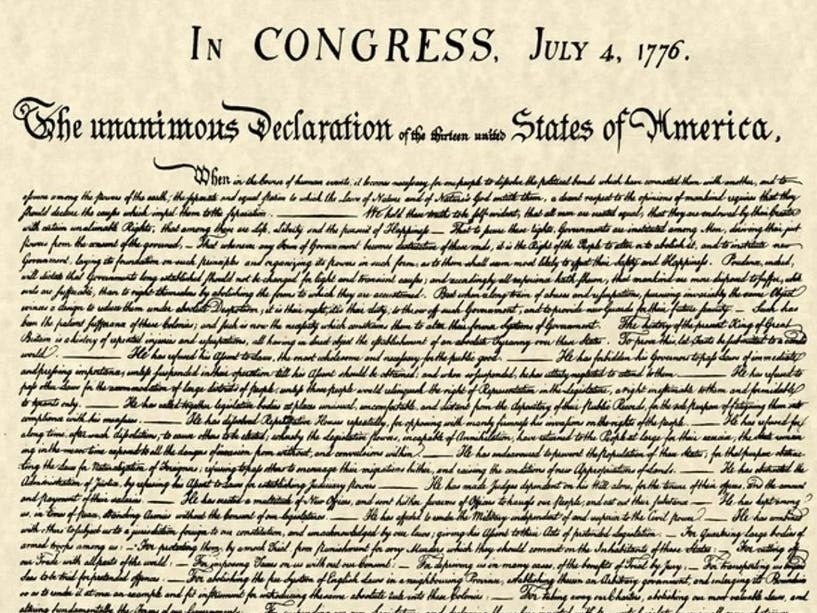 IN CONGRESS, JULY 4, 1776.
The unanimous Declaration of the thirteen united States of America,
When in the Course of human events, it becomes necessary for one people to dissolve the political bands which have connected them with another, and to
among the powers of the earth, the separate and equal station to which the Laws of Nature and of Nature's God entitle them, a decent respect to the opinions of mankind requires that they
should declare the causes which impel them to the separation. We hold these truths to be self-evident, that all men are created equal, that they are endowed by their Creator
with certain unalienable Rights, that among these are Life, Liberty and the pursuit of Happiness — That to secure these rights, Governments are instituted among Men, deriving their just
powers from the consent of the governed, — That whenever any Form of Government becomes destructive of these ends, it is the Right of the People to alter or to abolish it, and to institute new
Government, laying its foundation on such principles and organizing its powers in such form, as to them shall seem most likely to effect their Safety and Happiness. Prudence, indeed,
will dictate that Governments long established should not be changed for light and transient causes; and accordingly all experience hath shewn, that mankind are more disposed to suffer, while
evils are sufferable, than to right themselves by abolishing the forms to which they are accustomed. But when a long train of abuses and usurpations, pursuing invariably the same Object
evinces a design to reduce them under absolute Despotism, it is their right, it is their duty, to throw off such Government, and to provide new Guards for their future security. — Such has
been the patient sufferance of these Colonies; and such is now the necessity which constrains them to alter their former Systems of Government. The history of the present King of Great
Britain is a history of repeated injuries and usurpations, all having in direct object the establishment of an absolute Tyranny over these States. To prove this, let Facts be submitted to a candid
world. He has refused his Assent to Laws, the most wholesome and necessary for the public good. He has forbidden his Governors to pass Laws of immediate
and pressing importance, unless suspended in their operation till his Assent should be obtained; and when so suspended, he has utterly neglected to attend to them. He has refused to
pass other Laws for the accommodation of large districts of people, unless those people would relinquish the right of Representation in the Legislature, a right inestimable to them and formidable
to tyrants only. He has called together legislative bodies at places unusual, uncomfortable, and distant from the depository of their Public Records, for the sole purpose of fatiguing them into
compliance with his measures. He has dissolved Representative Houses repeatedly, for opposing with manly firmness his invasions on the rights of the people. He has refused for
a long time, after such dissolutions, to cause others to be elected; whereby the Legislative powers, incapable of Annihilation, have returned to the People at large for their exercise; the State remain
ing in the mean time exposed to all the dangers of invasion from without, and convulsions within. He has endeavoured to prevent the population of these States; for that purpose obstruc
ting the Laws for Naturalization of Foreigners; refusing to pass others to encourage their migrations hither, and raising the conditions of new Appropriations of Lands. He has obstructed the
Administration of Justice, by refusing his Assent to Laws for establishing Judiciary powers. He has made Judges dependent on his Will alone, for the tenure of their offices, and the amount
and payment of their salaries. He has erected a multitude of New Offices, and sent hither swarms of Officers to harrass our people, and eat out their substance. He has kept among
us, in times of peace, Standing Armies without the Consent of our legislatures. He has affected to render the Military independent of and superior to the Civil power. He has combined
with others to subject us to a jurisdiction foreign to our constitution, and unacknowledged by our laws; giving his Assent to their Acts of pretended Legislation: — For Quartering large bodies of
armed troops among us: — For protecting them, by a mock Trial, from punishment for any Murders which they should commit on the Inhabitants of these States: — For cutting off
our Trade with all parts of the world: — For imposing Taxes on us without our Consent: — For depriving us in many cases, of the benefits of Trial by Jury: — For transporting us beyond
Seas to be tried for pretended offences — For abolishing the free System of English Laws in a neighbouring Province, establishing therein an Arbitrary government, and enlarging its Boundaries
so as to render it at once an example and fit instrument for introducing the same absolute rule into these Colonies: — For taking away our Charters, abolishing our most valuable Laws, and
altering fundamentally the Forms of our Governments: